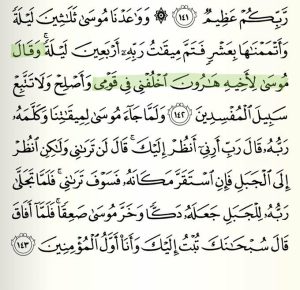 رَّبِّكُمْ عَظِيمٌ ١٤١ ۞ وَوَٰعَدْنَا مُوسَىٰ ثَلَٰثِينَ لَيْلَةً
وَأَتْمَمْنَٰهَا بِعَشْرٍ فَتَمَّ مِيقَٰتُ رَبِّهِۦٓ أَرْبَعِينَ لَيْلَةً ۚ وَقَالَ
مُوسَىٰ لِأَخِيهِ هَٰرُونَ ٱخْلُفْنِى فِى قَوْمِى وَأَصْلِحْ وَلَا تَتَّبِعْ
سَبِيلَ ٱلْمُفْسِدِينَ ١٤٢ وَلَمَّا جَآءَ مُوسَىٰ لِمِيقَٰتِنَا وَكَلَّمَهُۥ
رَبُّهُۥ قَالَ رَبِّ أَرِنِىٓ أَنظُرْ إِلَيْكَ ۚ قَالَ لَن تَرَىٰنِى وَلَٰكِنِ ٱنظُرْ
إِلَى ٱلْجَبَلِ فَإِنِ ٱسْتَقَرَّ مَكَانَهُۥ فَسَوْفَ تَرَىٰنِى ۚ فَلَمَّا تَجَلَّىٰ
رَبُّهُۥ لِلْجَبَلِ جَعَلَهُۥ دَكًّا وَخَرَّ مُوسَىٰ صَعِقًا ۚ فَلَمَّآ أَفَاقَ
قَالَ سُبْحَٰنَكَ تُبْتُ إِلَيْكَ وَأَنَا۠ أَوَّلُ ٱلْمُؤْمِنِينَ ١٤٣